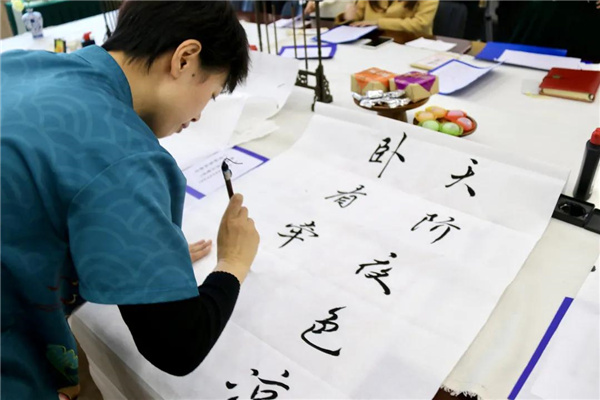 天阶夜色
卧看牵